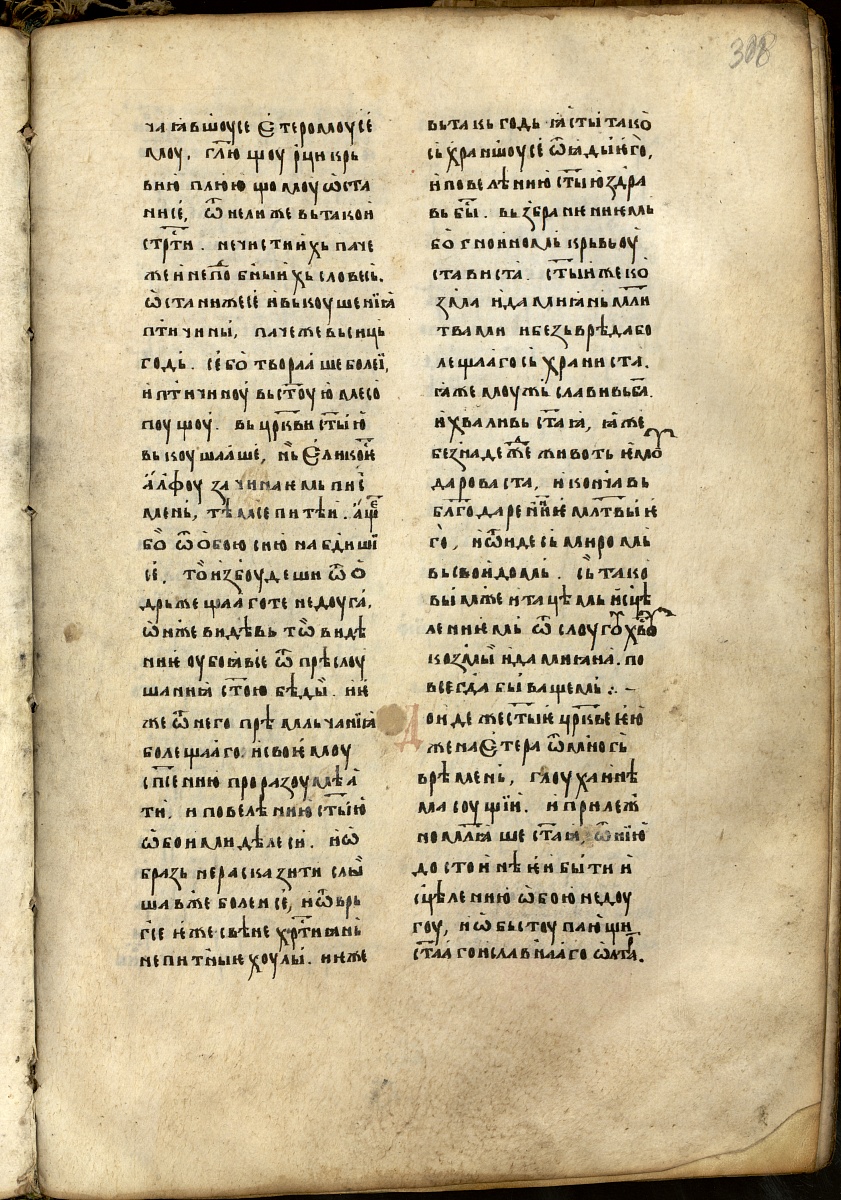 308
чаꙗвшоусе Єтеромоу се
моу. глю щоу рци крь
вию плюющомоу ѡста
нисе, ѿнелиже вьтакои
стрⷭти. нечистиихь паче
жеи неподⷪбныихь словесь.
ѡстанижесе ивькоушениꙗ
птичины, пачежевьсиць
годь. себо творꙗаше болеи,
иптичиноу вьстоую месо
поущоу. вьцркви стыю
вькоушꙗаше, нь Єликоже
алфоу зачинаѥмь пис
мень, тѣмсе питѣи. аще
бо ѿобою сию набдиши
се, тоизбоудеши ѿо
дрьжещааготе недоуга.
ѡниже видѣвь тѡ видѣ
ниѥ оубоꙗвсе ѿ прѣслоу
шаниꙗ стою бѣды. иѥ
же ѿнего прѣмльчаниꙗ
болещааго. исвоѥмоу
спсению проразоумѣа
ти. иповелѣнию стыю
ѡбоими дѣлеси. иѡ
бразь нерасказити слы
шавже болеисе, иѿврь
гсе ѥже свѣне хртиꙗнь
непитныѥ хоулы. ииже
вьтакь годь ꙗсты тако
сьхраншоусе ѿꙗдыѥго,
иповелѣнию стыю здра
вь бы. вьзбраниѥмь
бо гноиномь крьвь оу
стависта. стыиже ко
зма идамиꙗнь мли
твами ибезьврѣдабо
лещааго сьхраниста.
ꙗже моужь славивьба.
ихваливь стаꙗ, ꙗже
безнадежде животь ѥмоу
дароваста, икончавь
благодареньѥ млтвыѥ
го, иѿидесь миромь
вьсвои домь. сь тако
вымже итацѣмь исцѣ
лениѥмь ѿ слоугоу хвоу
козмы идамиꙗна. по
всегда бываѥщемь ⁘ –
оиде жестыѥ црквеѥю
жена Єтера ѿмногь
врѣмень, глоуха инѣ
ма соущи. иприлеж
номлꙗше стаꙗ, ѿнию
достоинѣи быти и
сцѣлению ѡбою недоу
гоу, иѡбьстоупающи
стаагоиславнааго ѡлта.